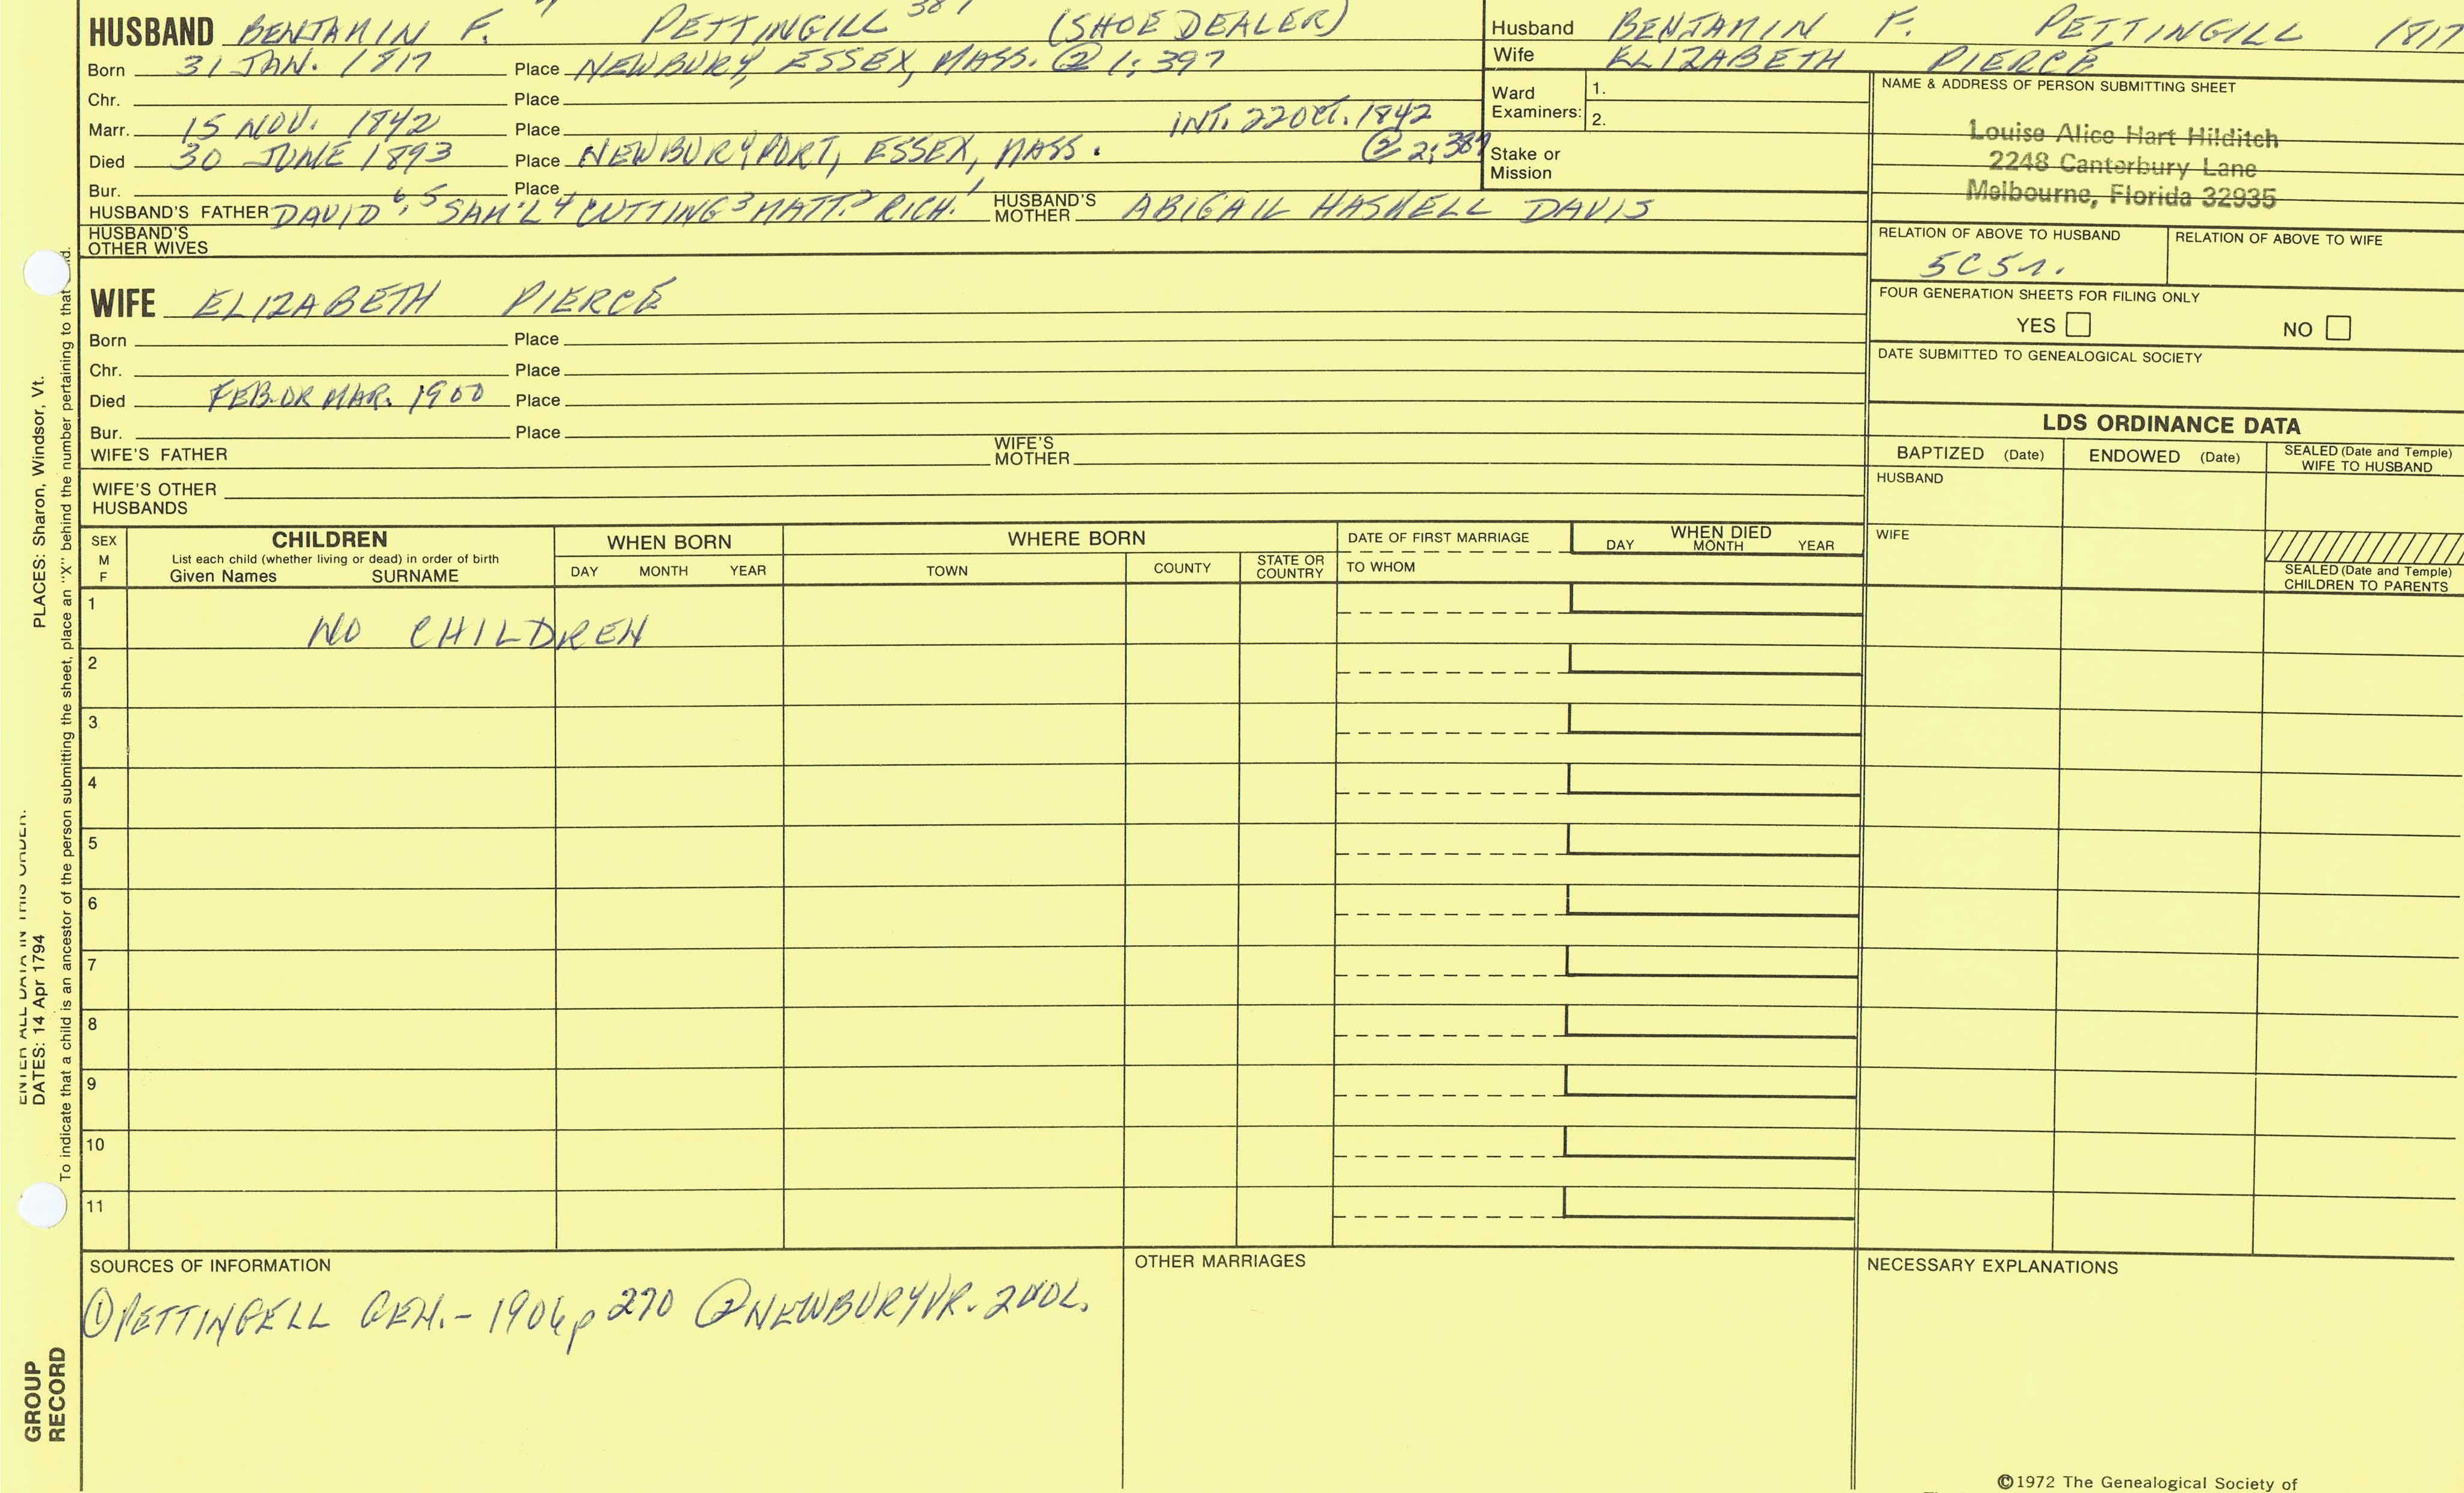 HUSBAND BENJAMIN F. PETTINGILL 387 (SHOE DEALER)
Born 31 JAN. 1817 Place NEWBURY, ESSEX, MASS. ② 1:397
Chr. Place
Marr. 15 NOV. 1842 Place INT. 22 OCT. 1842
Died 30 JUNE 1893 Place NEWBURYPORT, ESSEX, MASS. ② 2:387
Bur. Place
HUSBAND'S FATHER DAVID 6, 5 SAM'L 4 CUTTING 3 MATT. 2 RICH. 1 HUSBAND'S MOTHER ABIGAIL HASKELL DAVIS
HUSBAND'S
OTHER WIVES
WIFE ELIZABETH PIERCE
Born Place
Chr. Place
Died FEB. OR MAR. 1900 Place
Bur. Place
WIFE'S FATHER WIFE'S MOTHER
WIFE'S OTHER
HUSBANDS
Husband BENJAMIN F. PETTINGILL 1817
Wife ELIZABETH PIERCE
Ward Examiners: 1.
2.
Stake or
Mission
NAME & ADDRESS OF PERSON SUBMITTING SHEET
Louise Alice Hart Hilditch
2248 Canterbury Lane
Melbourne, Florida 32935
RELATION OF ABOVE TO HUSBAND RELATION OF ABOVE TO WIFE
5C5r.
FOUR GENERATION SHEETS FOR FILING ONLY
YES NO
DATE SUBMITTED TO GENEALOGICAL SOCIETY
LDS ORDINANCE DATA
BAPTIZED (Date) ENDOWED (Date) SEALED (Date and Temple)
WIFE TO HUSBAND
HUSBAND
WIFE
SEALED (Date and Temple)
CHILDREN TO PARENTS
SEX
M
F
CHILDREN
List each child (whether living or dead) in order of birth
Given Names SURNAME
WHEN BORN
DAY MONTH YEAR
WHERE BORN
TOWN COUNTY STATE OR COUNTRY
DATE OF FIRST MARRIAGE
TO WHOM
WHEN DIED
DAY MONTH YEAR
1
NO CHILDREN
2
3
4
5
6
7
8
9
10
11
SOURCES OF INFORMATION
① PETTINGELL GEN. - 1906 p 270 ② NEWBURY VR. 2 VOL.
OTHER MARRIAGES
NECESSARY EXPLANATIONS
©1972 The Genealogical Society of
ENTER ALL DATA IN THIS ORDER.
DATES: 14 Apr 1794 PLACES: Sharon, Windsor, Vt.
To indicate that a child is an ancestor of the person submitting the sheet, place an "X" behind the number pertaining to that
GROUP
RECORD